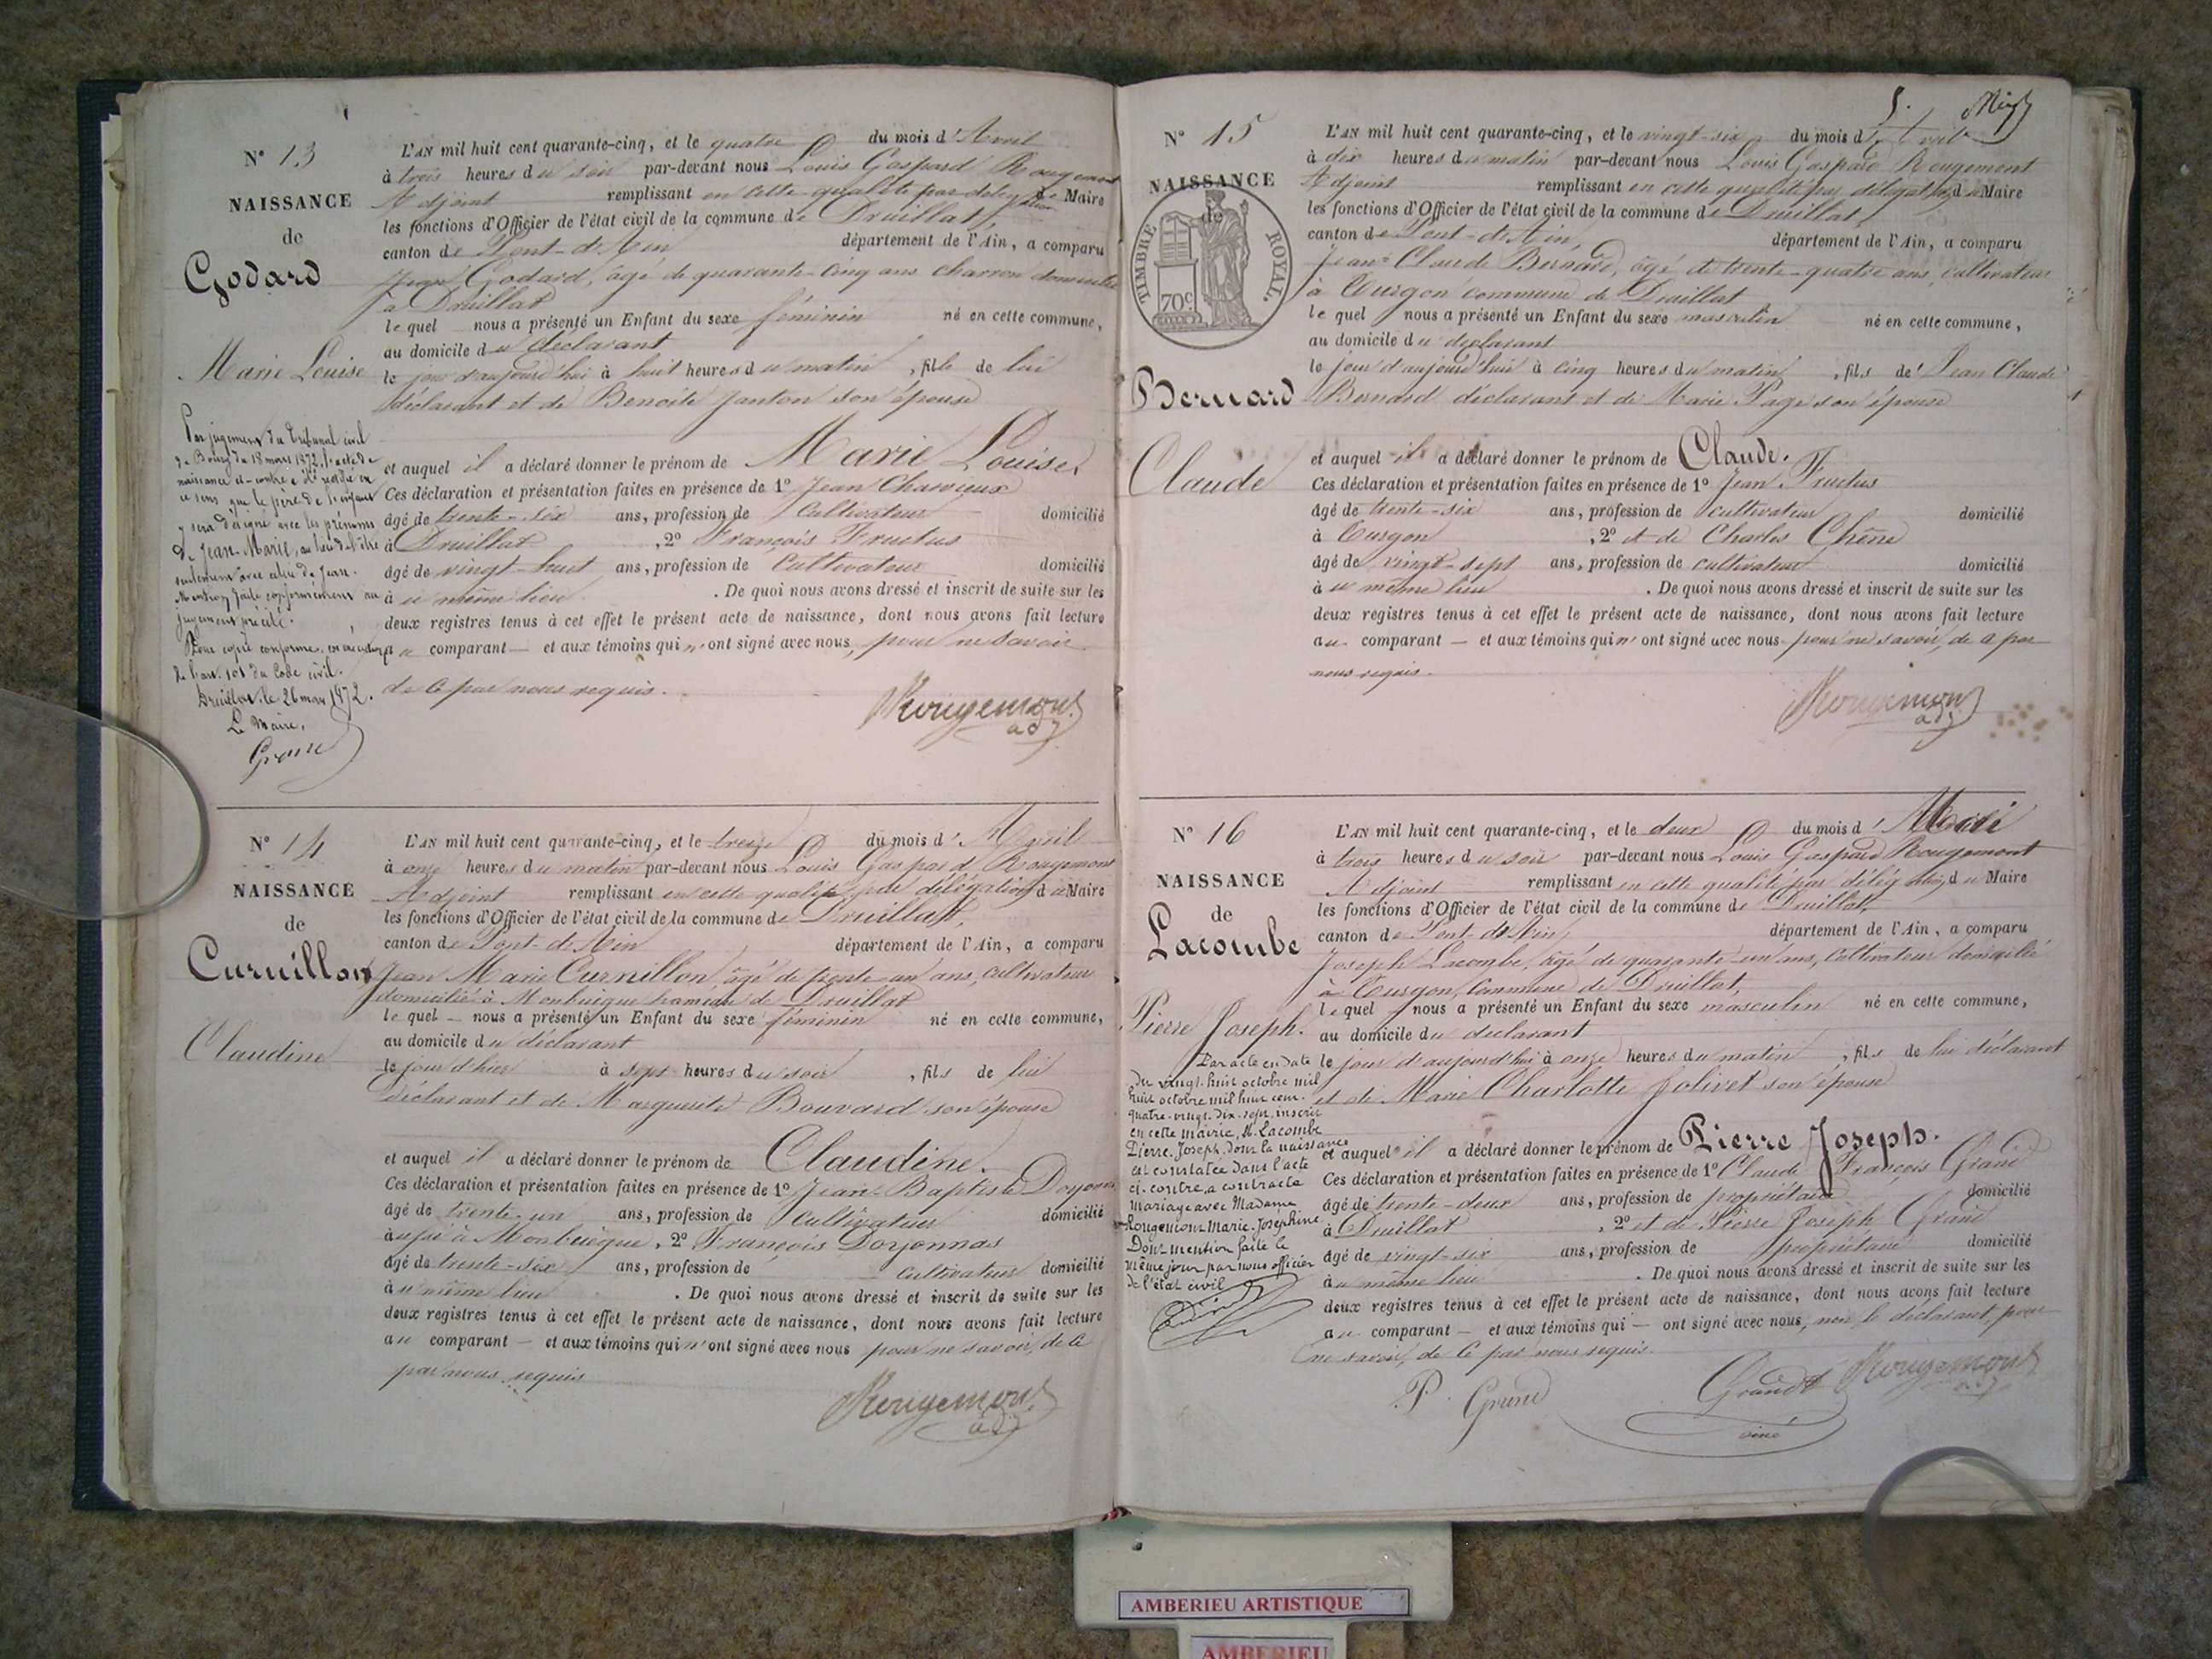 N° 13
NAISSANCE
de
Godard
Marie Louise
Par jugement du Tribunal civil
de Bourg du 18 mars 1872, l'acte de
naissance ci-contre a été rectifié en
ce sens que le père de l'enfant
y sera désigné avec les prénoms
de Jean-Marie, au lieu de l'être
seulement avec celui de Jean.
Mention faite conformément au
jugement précité.
Pour copie conforme, en exécution
de l'art. 101 du Code civil.
Druillat, le 26 mars 1872.
Le Maire,
L'AN mil huit cent quarante-cinq, et le quatre du mois d'Avril
à trois heures du soir par-devant nous Louis Gaspard Rougemont
Adjoint remplissant en cette qualité par délégation du Maire
les fonctions d'Officier de l'état civil de la commune de Druillat,
canton de Pont-d'Ain département de l'Ain, a comparu
Jean Godard, âgé de quarante-cinq ans charron domicilié
à Druillat
lequel nous a présenté un Enfant du sexe féminin né en cette commune,
au domicile du déclarant
le jour d'aujourd'hui à huit heures du matin, fille de lui
déclarant et de Benoîte Janton son épouse
et auquel il a déclaré donner le prénom de Marie Louise,
Ces déclaration et présentation faites en présence de 1° Jean Charvieux
âgé de trente-six ans, profession de Cultivateur domicilié
à Druillat, 2° François Fructus
âgé de vingt-huit ans, profession de Cultivateur domicilié
à u même lieu. De quoi nous avons dressé et inscrit de suite sur les
deux registres tenus à cet effet le présent acte de naissance, dont nous avons fait lecture
au comparant — et aux témoins qui n'ont signé avec nous, pour ne savoir
de ce par nous requis.
Rougemont
adj
N° 14
NAISSANCE
de
Curnillon
Claudine
L'AN mil huit cent quarante-cinq, et le treize du mois d'Avril
à onze heures du matin par-devant nous Louis Gaspard Rougemont
Adjoint remplissant en cette qualité par délégation du Maire
les fonctions d'Officier de l'état civil de la commune de Druillat,
canton de Pont-d'Ain département de l'Ain, a comparu
Jean Marie Curnillon, âgé de trente-un ans, cultivateur
domicilié à Monbuègue hameau de Druillat
lequel — nous a présenté un Enfant du sexe féminin né en cette commune,
au domicile du déclarant
le jour d'hier à sept heures du soir, fils de lui
déclarant et de Marguerite Bouvard son épouse
et auquel il a déclaré donner le prénom de Claudine.
Ces déclaration et présentation faites en présence de 1° Jean-Baptiste
âgé de trente-un ans, profession de Cultivateur domicilié
à Monbuègue, 2° François Doyonnas
âgé de trente-six ans, profession de cultivateur domicilié
à u même lieu. De quoi nous avons dressé et inscrit de suite sur les
deux registres tenus à cet effet le présent acte de naissance, dont nous avons fait lecture
au comparant — et aux témoins qui n'ont signé avec nous pour ne savoir, de ce
par nous requis
Rougemont
adj
5.
N° 15
NAISSANCE
de
TIMBRE ROYAL.
70c
Bernard
Claude
L'AN mil huit cent quarante-cinq, et le vingt-six du mois d'Avril
à dix heures du matin par-devant nous Louis Gaspard Rougemont
Adjoint remplissant en cette qualité par délégation du Maire
les fonctions d'Officier de l'état civil de la commune de Druillat,
canton de Pont-d'Ain, département de l'Ain, a comparu
Jean-Claude Bernard, âgé de trente-quatre ans, cultivateur
à Turgon commune de Druillat
lequel nous a présenté un Enfant du sexe masculin né en cette commune,
au domicile du déclarant
le jour d'aujourd'hui à cinq heures du matin, fils de Jean Claude
Bernard déclarant et de Marie Page son épouse
et auquel il a déclaré donner le prénom de Claude.
Ces déclaration et présentation faites en présence de 1° Jean Fructus
âgé de trente-six ans, profession de cultivateur domicilié
à Turgon, 2° et de Charles Chêne
âgé de vingt-sept ans, profession de cultivateur domicilié
à u même lieu. De quoi nous avons dressé et inscrit de suite sur les
deux registres tenus à cet effet le présent acte de naissance, dont nous avons fait lecture
au comparant — et aux témoins qui n'ont signé avec nous pour ne savoir, de ce par
nous requis.
Rougemont
adj
N° 16
NAISSANCE
de
Lacombe
Pierre Joseph.
Par acte en date
du vingt-huit octobre mil
huit octobre mil huit cent
quatre-vingt-dix-sept, inscrit
en cette mairie, M. Lacombe
Pierre-Joseph, dont la naissance
est constatée dans l'acte
ci-contre a contracté
mariage avec Madame
Rougemont Marie-Joséphine
Dont mention faite le
même jour par nous officier
de l'état civil
L'AN mil huit cent quarante-cinq, et le deux du mois d' Mai
à trois heures du soir par-devant nous Louis Gaspard Rougemont
Adjoint remplissant en cette qualité par délégation du Maire
les fonctions d'Officier de l'état civil de la commune de Druillat,
canton de Pont-d'Ain, département de l'Ain, a comparu
Joseph Lacombe, âgé de quarante-un ans, Cultivateur domicilié
à Turgon, Commune de Druillat,
lequel nous a présenté un Enfant du sexe masculin né en cette commune,
au domicile du déclarant
le jour d'aujourd'hui à onze heures du matin, fils de lui déclarant
et de Marie Charlotte Jolivet son épouse
et auquel il a déclaré donner le prénom de Pierre Joseph.
Ces déclaration et présentation faites en présence de 1° Claude François Grand
âgé de trente-deux ans, profession de propriétaire domicilié
à Druillat, 2° et de Pierre Joseph Grand
âgé de vingt-six ans, profession de propriétaire domicilié
à u même lieu. De quoi nous avons dressé et inscrit de suite sur les
deux registres tenus à cet effet le présent acte de naissance, dont nous avons fait lecture
au comparant — et aux témoins qui — ont signé avec nous, non le déclarant, pour
ne savoir, de ce par nous requis.
P. Grand
Grand
ainé
Rougemont
adj
AMBERIEU ARTISTIQUE
AMBERIEU